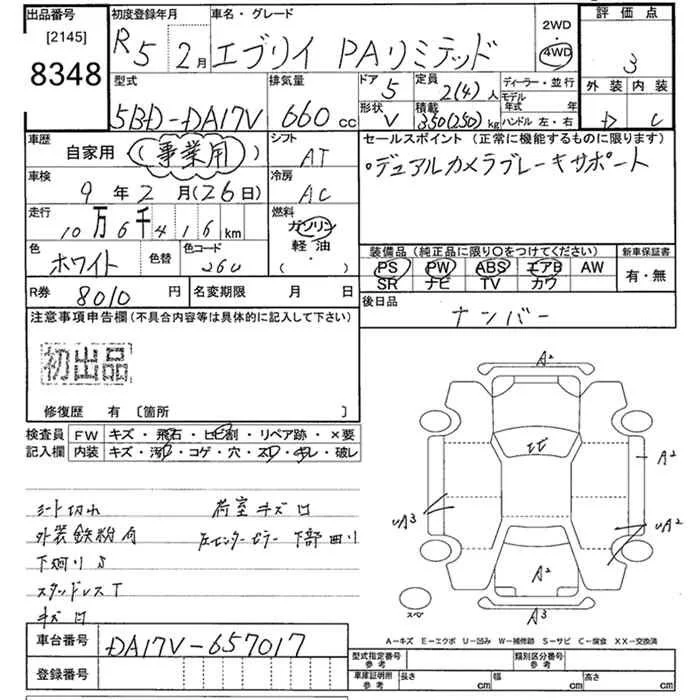 出品番号
[2145]
8348
初度登録年月
R5 2月
車名・グレード
エブリイ PAリミテッド
2WD
・
4WD
評価点
3
外装 内装
D C
型式
5BD-DA17V
排気量
660 cc
ドア 5
形状 V
定員 2(4)人
積載 350(250)kg
ディーラー・並行
モデル年式 年
ハンドル 左・右
車歴
自家用 (事業用)
シフト
AT
車検
9年2月(26日)
冷房
AC
走行
10万6千416 km
燃料
ガソリン
軽油
(・)
色
ホワイト
色替
色コード
26U
R券 8010円
名変期限 月 日
セールスポイント (正常に機能するものに限ります)
・デュアルカメラブレーキサポート
装備品 (純正品に限り○をつけてください)
PS PW ABS エアB AW
SR ナビ TV カワ
新車保証書
有・無
後日品
ナンバー
注意事項申告欄(不具合内容等は具体的に記入して下さい)
初出品
修復歴 有 [箇所 ]
検査員記入欄
FW キズ・飛石・ヒビ割・リペア跡・×要
内装 キズ・汚・コゲ・穴・スレ・切レ・破レ
シート切れ
荷室キズ凹
外装鉄粉有
左センターピラー下部曲り
下廻りS
スタッドレスT
キズ凹
A2
ヒビ
A2
UA3
UA2
A2
A3
スペ
A-キズ E-エクボ U-凹み W-補修跡 S-サビ C-腐食 XX-交換済
車台番号 DA17V-657017
登録番号
型式指定番号 参考
類別区分番号 参考
車庫証明用 参考
長さ cm 幅 cm 高さ cm